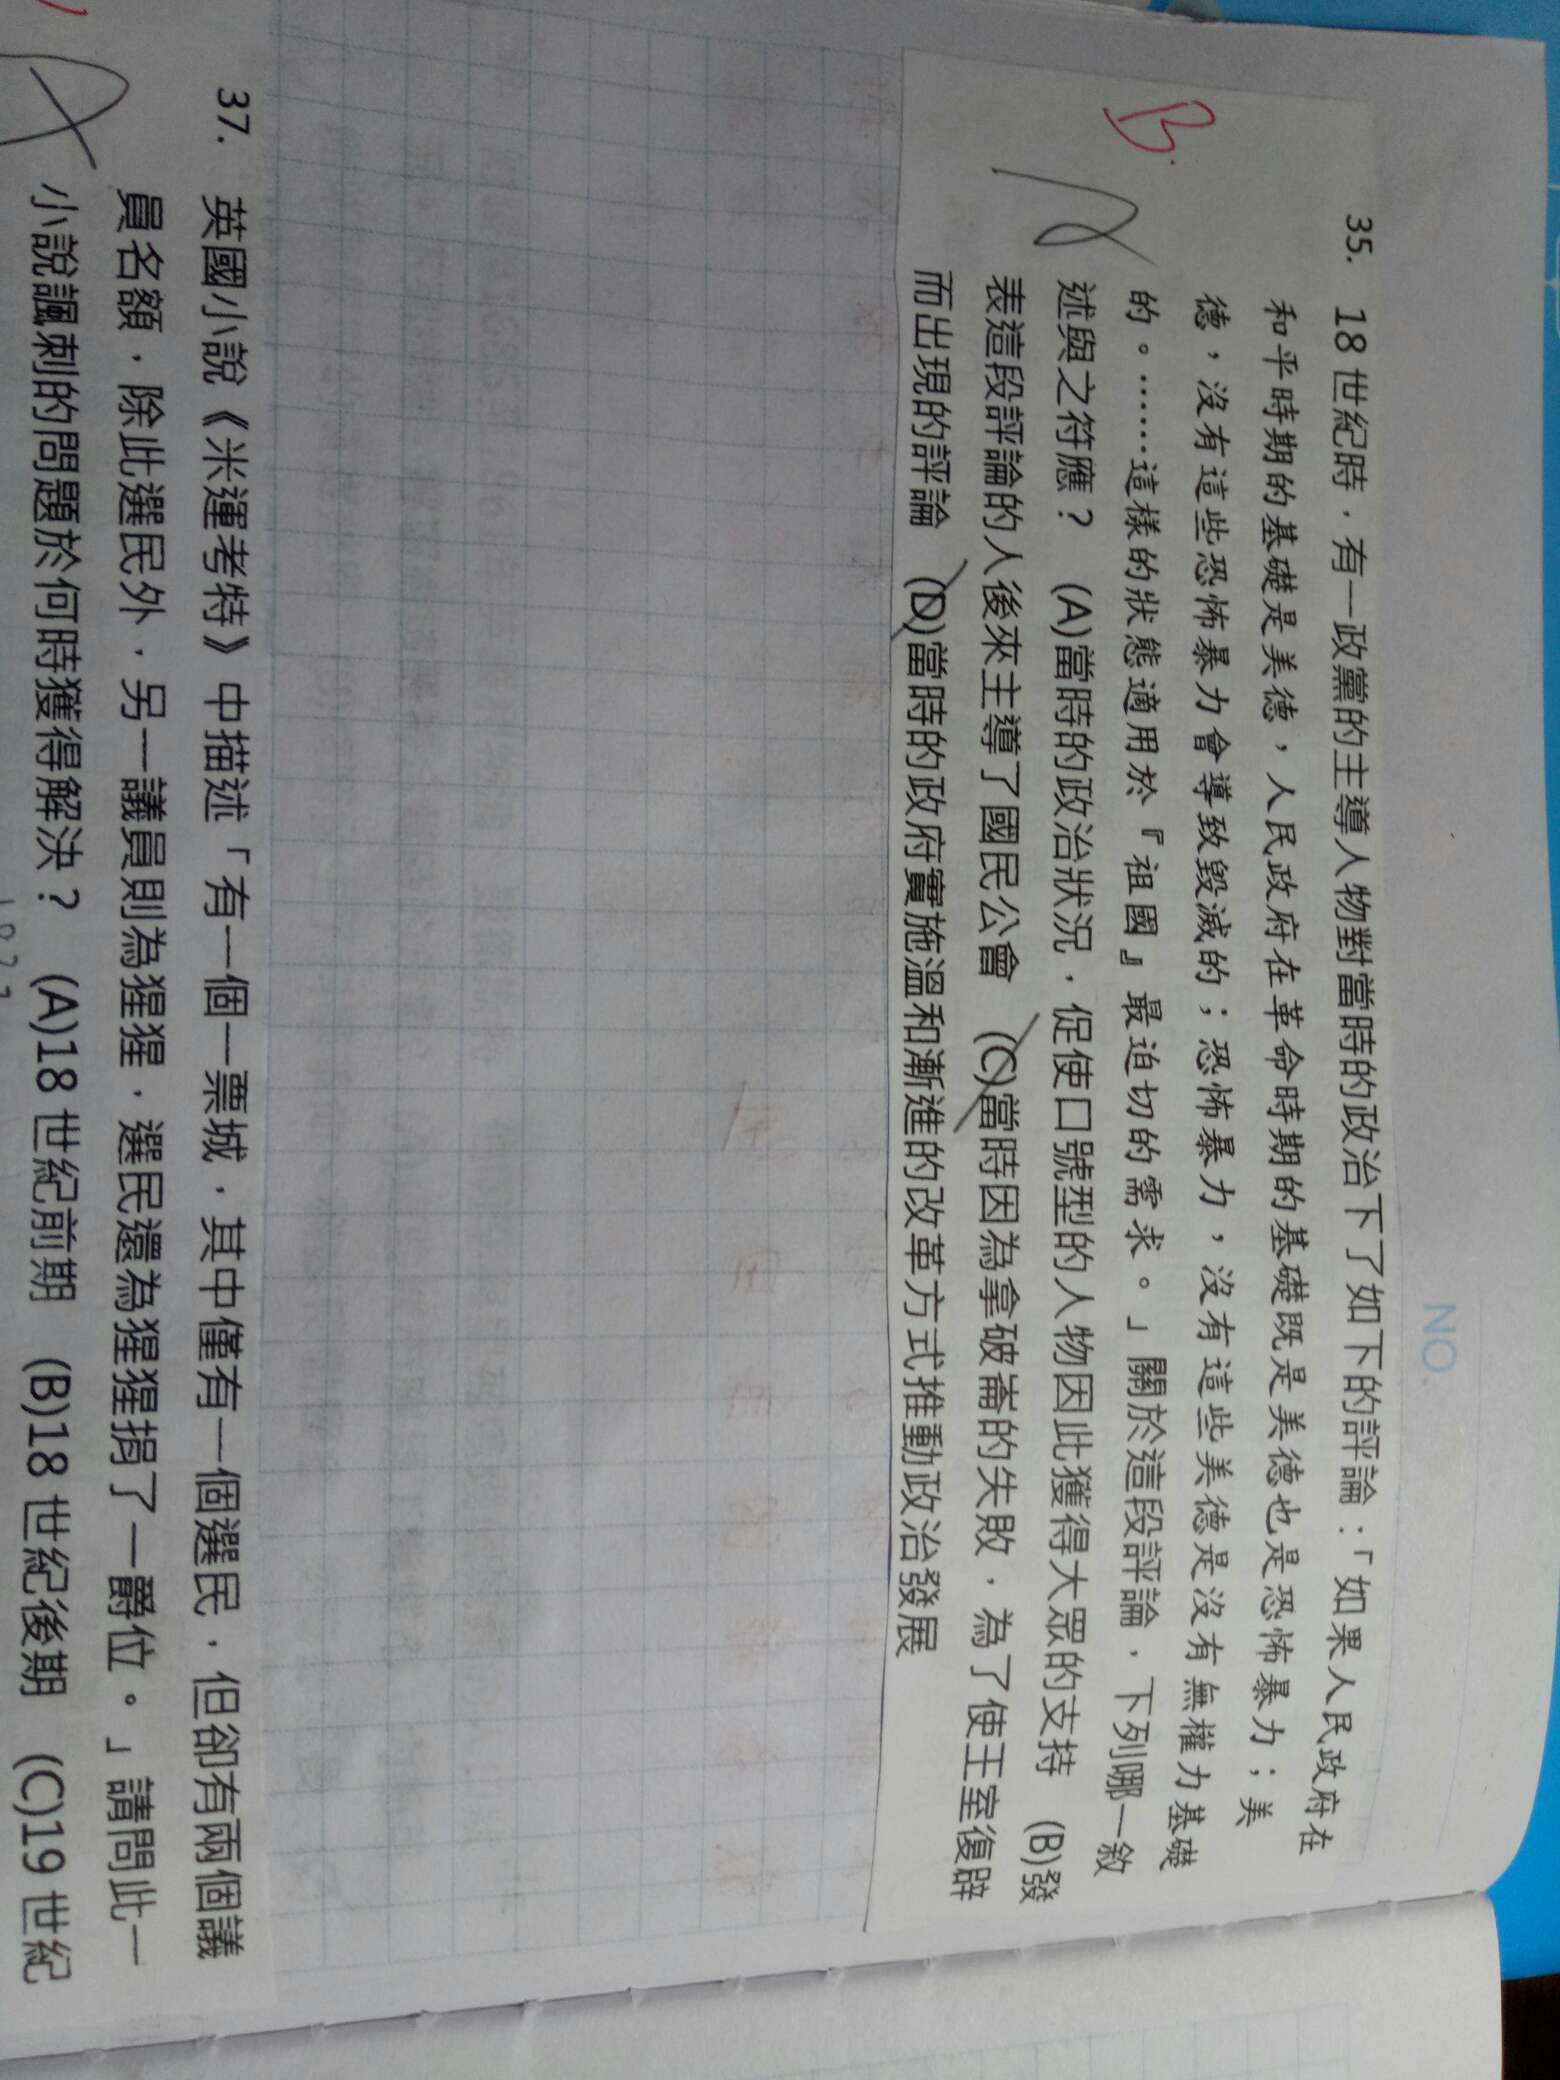 NO.
35. 18世紀時，有一政黨的主導人物對當時的政治下了如下的評論：「如果人民政府在
和平時期的基礎是美德，人民政府在革命時期的基礎既是美德也是恐怖暴力；美
德，沒有這些恐怖暴力會導致毀滅的；恐怖暴力，沒有這些美德是沒有無權力基礎
B.
的。……這樣的狀態適用於『祖國』最迫切的需求。」關於這段評論，下列哪一敘
述與之符應？ (A)當時的政治狀況，促使口號型的人物因此獲得大眾的支持 (B)發
表這段評論的人後來主導了國民公會 (C)當時因為拿破崙的失敗，為了使王室復辟
而出現的評論 (D)當時的政府實施溫和漸進的改革方式推動政治發展
37. 英國小說《米運考特》中描述「有一個一票城，其中僅有一個選民，但卻有兩個議
員名額，除此選民外，另一議員則為猩猩，選民還為猩猩捐了一爵位。」請問此一
小說諷刺的問題於何時獲得解決？ (A)18世紀前期 (B)18世紀後期 (C)19世紀